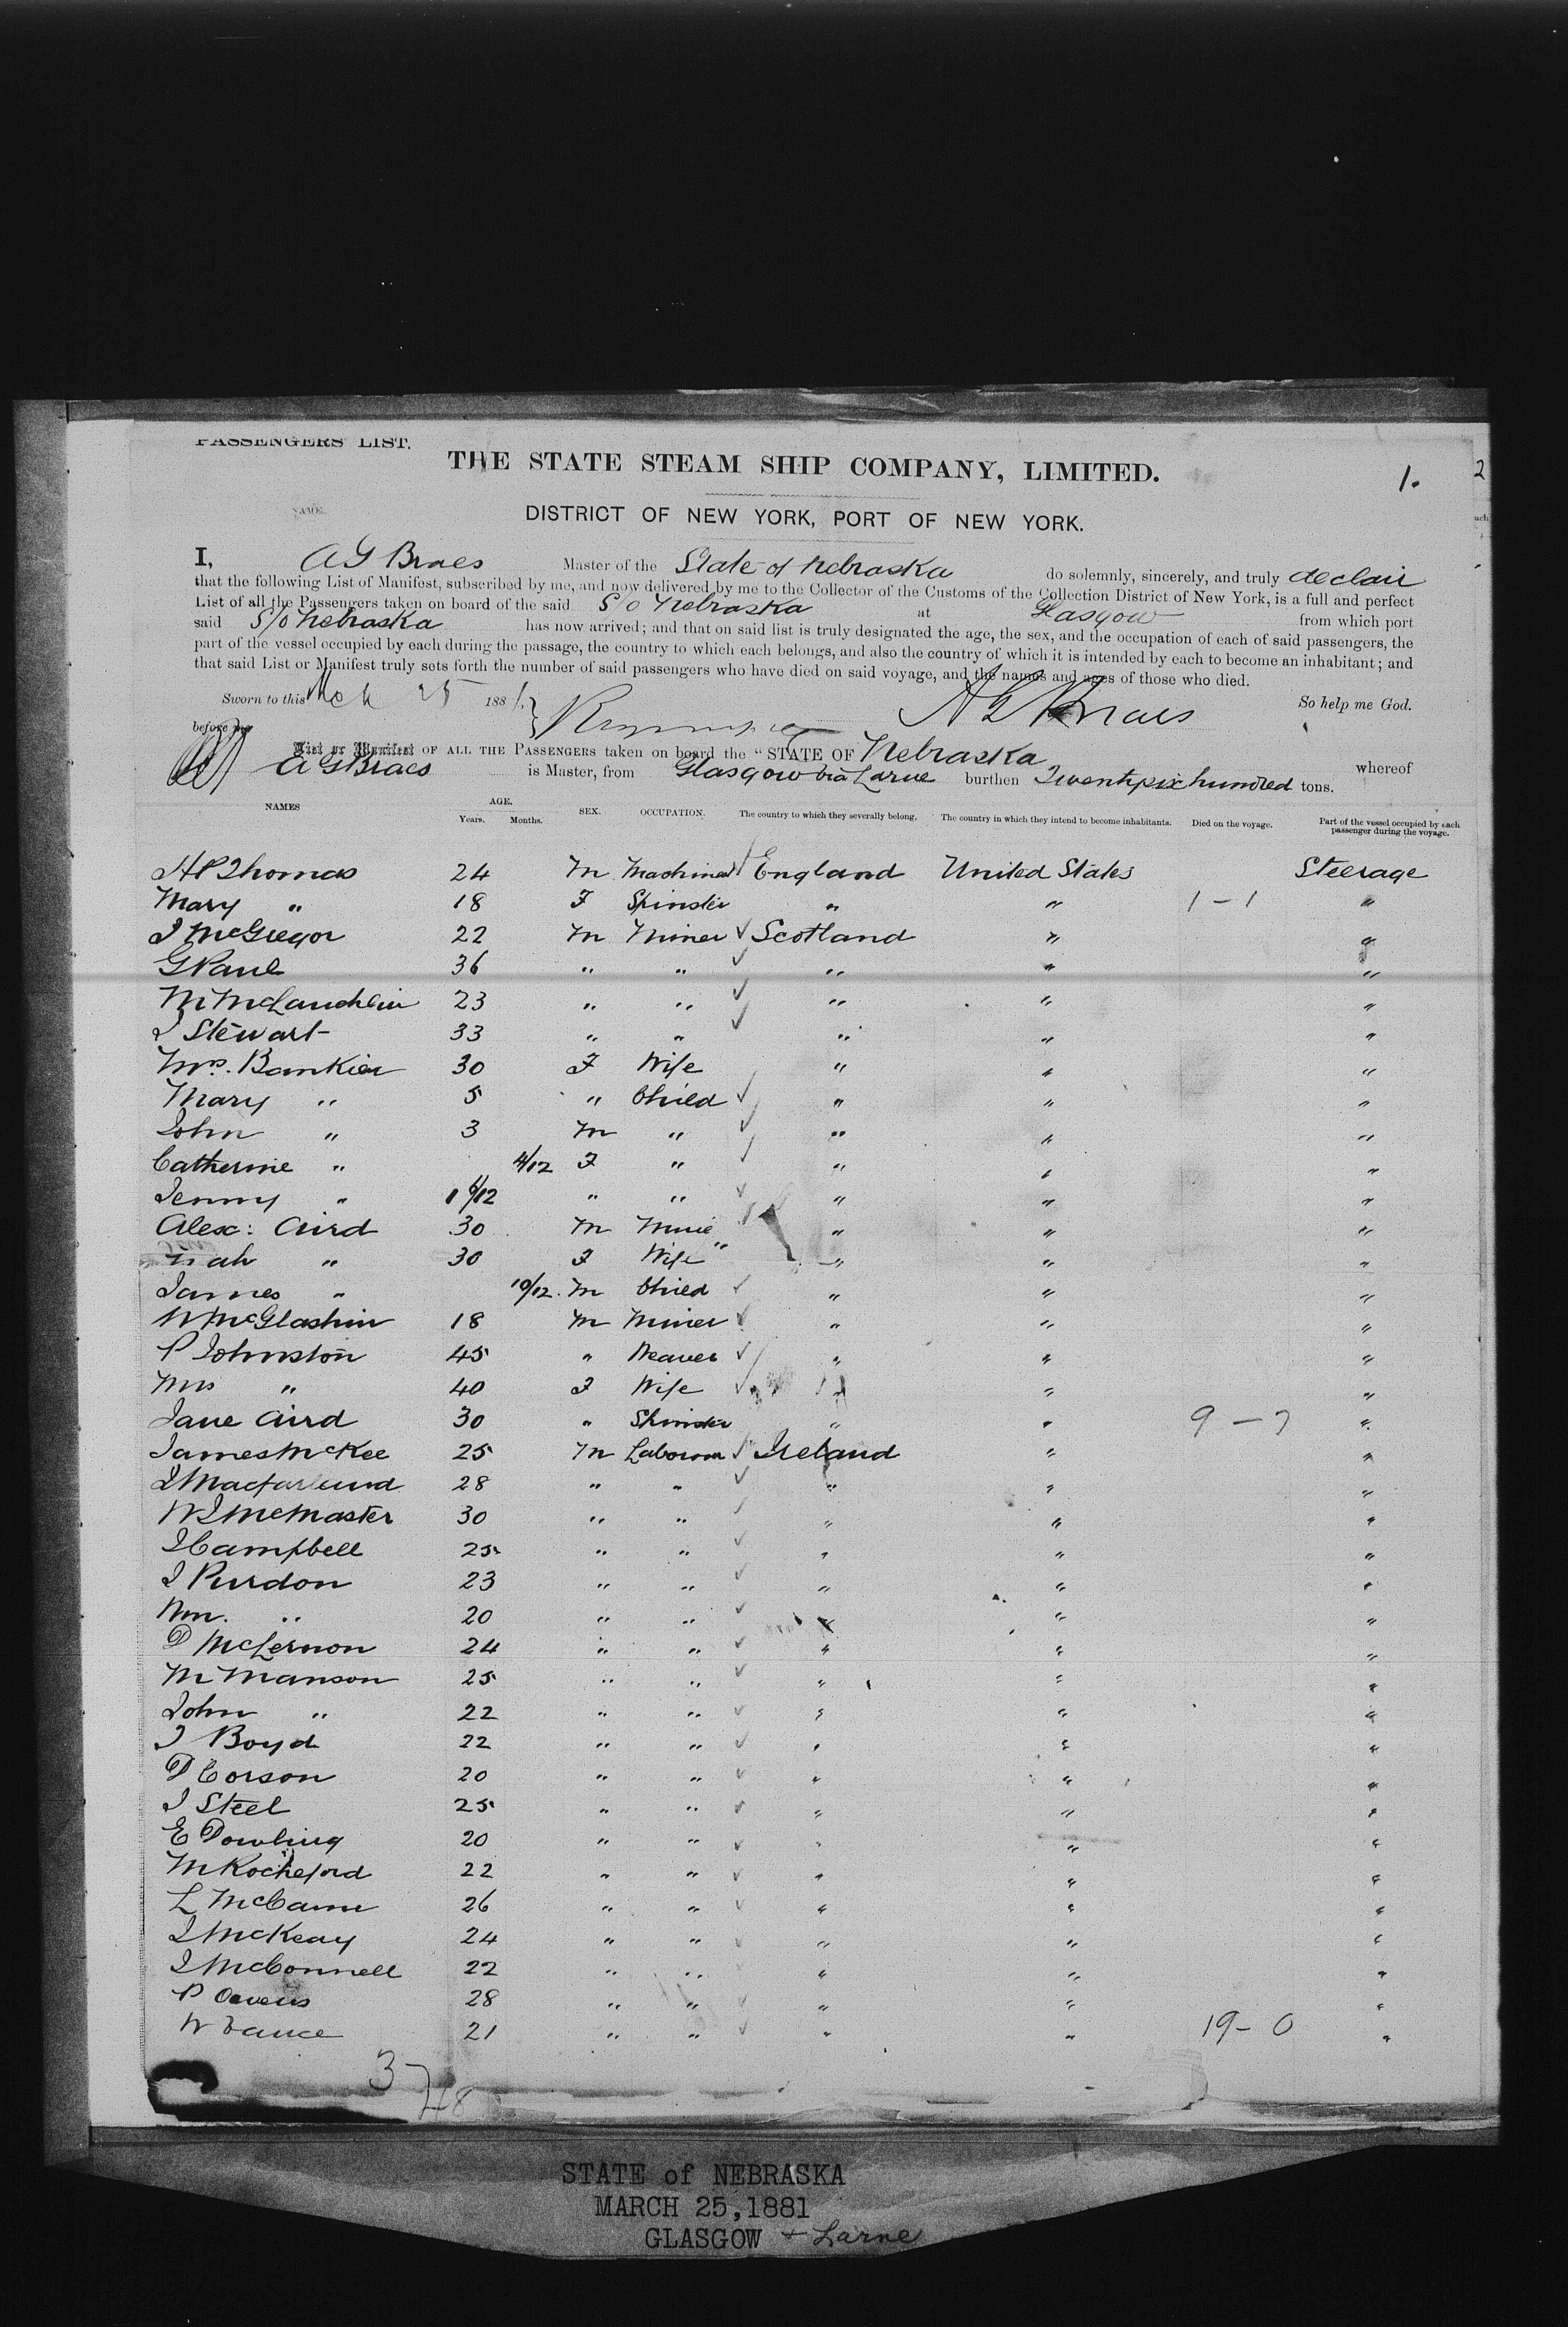 PASSENGERS LIST.
THE STATE STEAM SHIP COMPANY, LIMITED.
1.
2
NAME.
DISTRICT OF NEW YORK, PORT OF NEW YORK.
I, A G Braes Master of the State of Nebraska do solemnly, sincerely, and truly declair
that the following List of Manifest, subscribed by me, and now delivered by me to the Collector of the Customs of the Collection District of New York, is a full and perfect
List of all the Passengers taken on board of the said S/o Nebraska at Glasgow from which port
said S/o Nebraska has now arrived; and that on said list is truly designated the age, the sex, and the occupation of each of said passengers, the
part of the vessel occupied by each during the passage, the country to which each belongs, and also the country of which it is intended by each to become an inhabitant; and
that said List or Manifest truly sets forth the number of said passengers who have died on said voyage, and the names and ages of those who died.
Sworn to this Mch 25 1881. A G Braes So help me God.
before me
List or Manifest OF ALL THE PASSENGERS taken on board the "STATE OF Nebraska whereof
A G Braes is Master, from Glasgow via Larne burthen Twentysix hundred tons.
NAMES AGE. Years. Months. SEX. OCCUPATION. The country to which they severally belong. The country in which they intend to become inhabitants. Died on the voyage. Part of the vessel occupied by each passenger during the voyage.
H P Thomas 24 M Machinest England United States Steerage
Mary " 18 F Spinster " " 1-1 "
J McGregor 22 M Miner Scotland " "
G Paul 36 " " " " "
M McLauchlin 23 " " " " "
J Stewart 33 " " " " "
Mrs. Bankier 30 F Wife " " "
Mary " 5 " Child " " "
John " 3 M " " " "
Catherine " 4/12 F " " " "
Jenny " 1 6/12 " " " " "
Alex: Aird 30 M Mine " " "
" 30 F Wife " " "
James " 10/12 M Child " " "
W McGlashin 18 M Miner " " "
P Johnston 45 " Weaver " " "
Mrs " 40 F Wife " " "
Jane Aird 30 " Spinster " " 9-7 "
James McKee 25 M Laborour Ireland " "
J Macfarland 28 " " " " "
W J McMaster 30 " " " " "
J Campbell 25 " " " " "
J Purdon 23 " " " " "
Wm. " 20 " " " " "
D McLernon 24 " " " " "
M Manson 25 " " " " "
John " 22 " " " " "
J Boyd 22 " " " " "
D Corson 20 " " " " "
J Steel 25 " " " " "
E Dowling 20 " " " " "
M Rocheford 22 " " " " "
L McCann 26 " " " " "
J McKeay 24 " " " " "
J McConnell 22 " " " " "
P Owens 28 " " " " "
W Vance 21 " " " " 19-0 "
STATE of NEBRASKA
MARCH 25,1881
GLASGOW + Larne